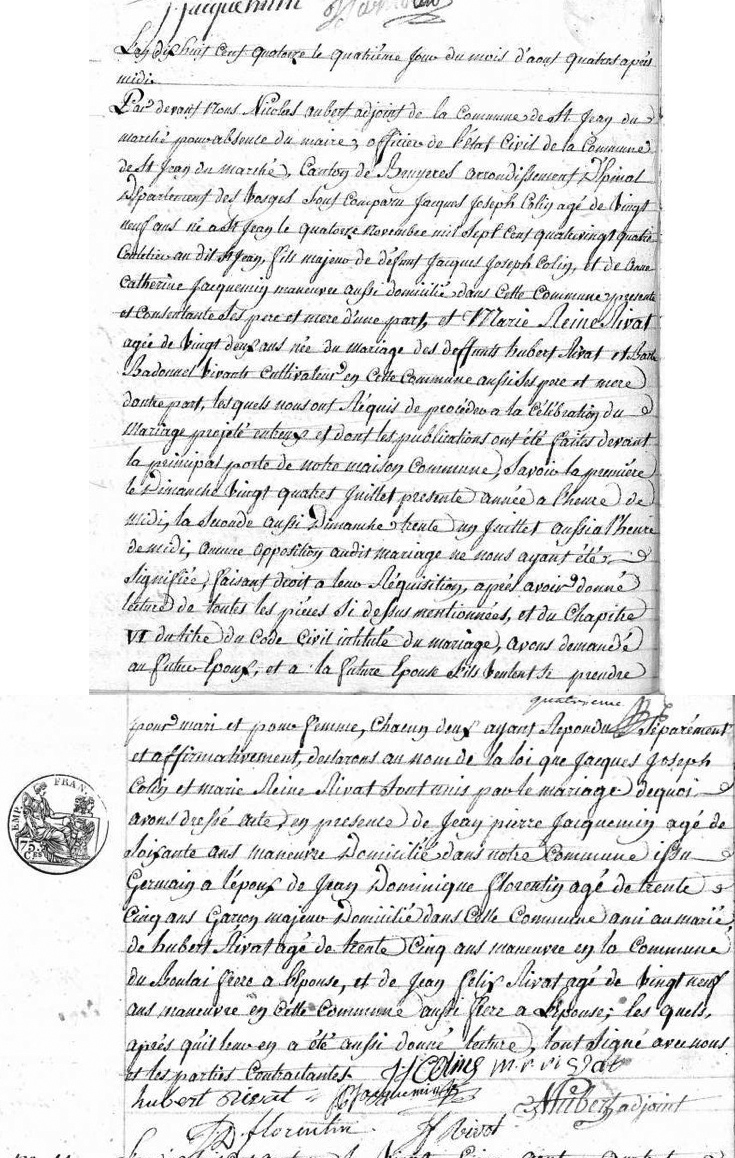 J Jacquemin
L'an dix huit cent quatorze le quatrième jour du mois d'aout quatres après
midi
Par devant nous Nicolas aubert adjoint de la Commune de St Jean du
marché pour absence du maire, officier de l'état Civil de la Commune
de St Jean du marché, Canton de Bruyeres arrondissement d'Epinal
Département des Vosges Sont Comparu Jacques Joseph Colin agé de Vingt
neuf ans né a St Jean le quatorze novembre mil Sept Cent quatrevingt quatre
au dit St Jean, fils majeur de défunt Jacques Joseph Colin, et de anne
Catherine Jacquemin maneuvre aussi domicilié dans Cette Commune presente
et Consentante Ses pere et mere d'une part, et Marie Reine Rivat
agée de Vingt deux ans née du mariage des deffunts hubert Rivat et Barbe
Badonnel Vivants Cultivateurs en Cette Commune aussi ses pere et mere
dautre part, les quels nous ont Réquis de procéder a la Célébration du
Mariage projeté entreux et dont les publications ont été faites devant
la principal porte de notre maison Commune, Savoir la première
le Dimanche Vingt quatres Juillet presente année a l'heure de
midi, la Seconde aussi Dimanche trente un Juillet aussi a l'heure
de midi, aucune opposition audit mariage ne nous ayant été
Signifiée, faisant droit a leur Réquisition, après avoir donné
lecture de toutes les pièces Si dessus mentionnées, et du Chapitre
VI du titre du Code Civil intitulé du mariage, avons demandé
au futur Epoux, et a la future Epouse S'ils Veulent Se prendre
quatrieme
pour mari et pour femme, Chacun deux ayant Répondu Séparément
et affirmativement, declarons au nom de la loi que Jacques Joseph
Colin et marie Reine Rivat Sont unis par le mariage de quoi
avons dressé acte, en presence de Jean pierre Jacquemin agé de
Soixante ans maneuvre Domicilié dans notre Commune
Germain a l'époux de Jean Dominique florentin agé de trente
Cinq ans Garcon majeur Domicilié dans Cette Commune ami au marié
de hubert Rivat agé de trente Cinq ans maneuvre en la Commune
du Boulai frere a l'Epouse, et de Jean felix Rivat agé de Vingt neuf
ans maneuvre en Cette Commune aussi frere a l'Epouse; les quels,
après qu'il leur en a été aussi donné lecture, l'ont Signé avec nous
et les parties Contractantes.
EMP. FRAN.
75 Ces
JJ Colin m r rivat
hubert rivat JP Jacquemin NAubert adjoint
JD florentin Jf Rivat